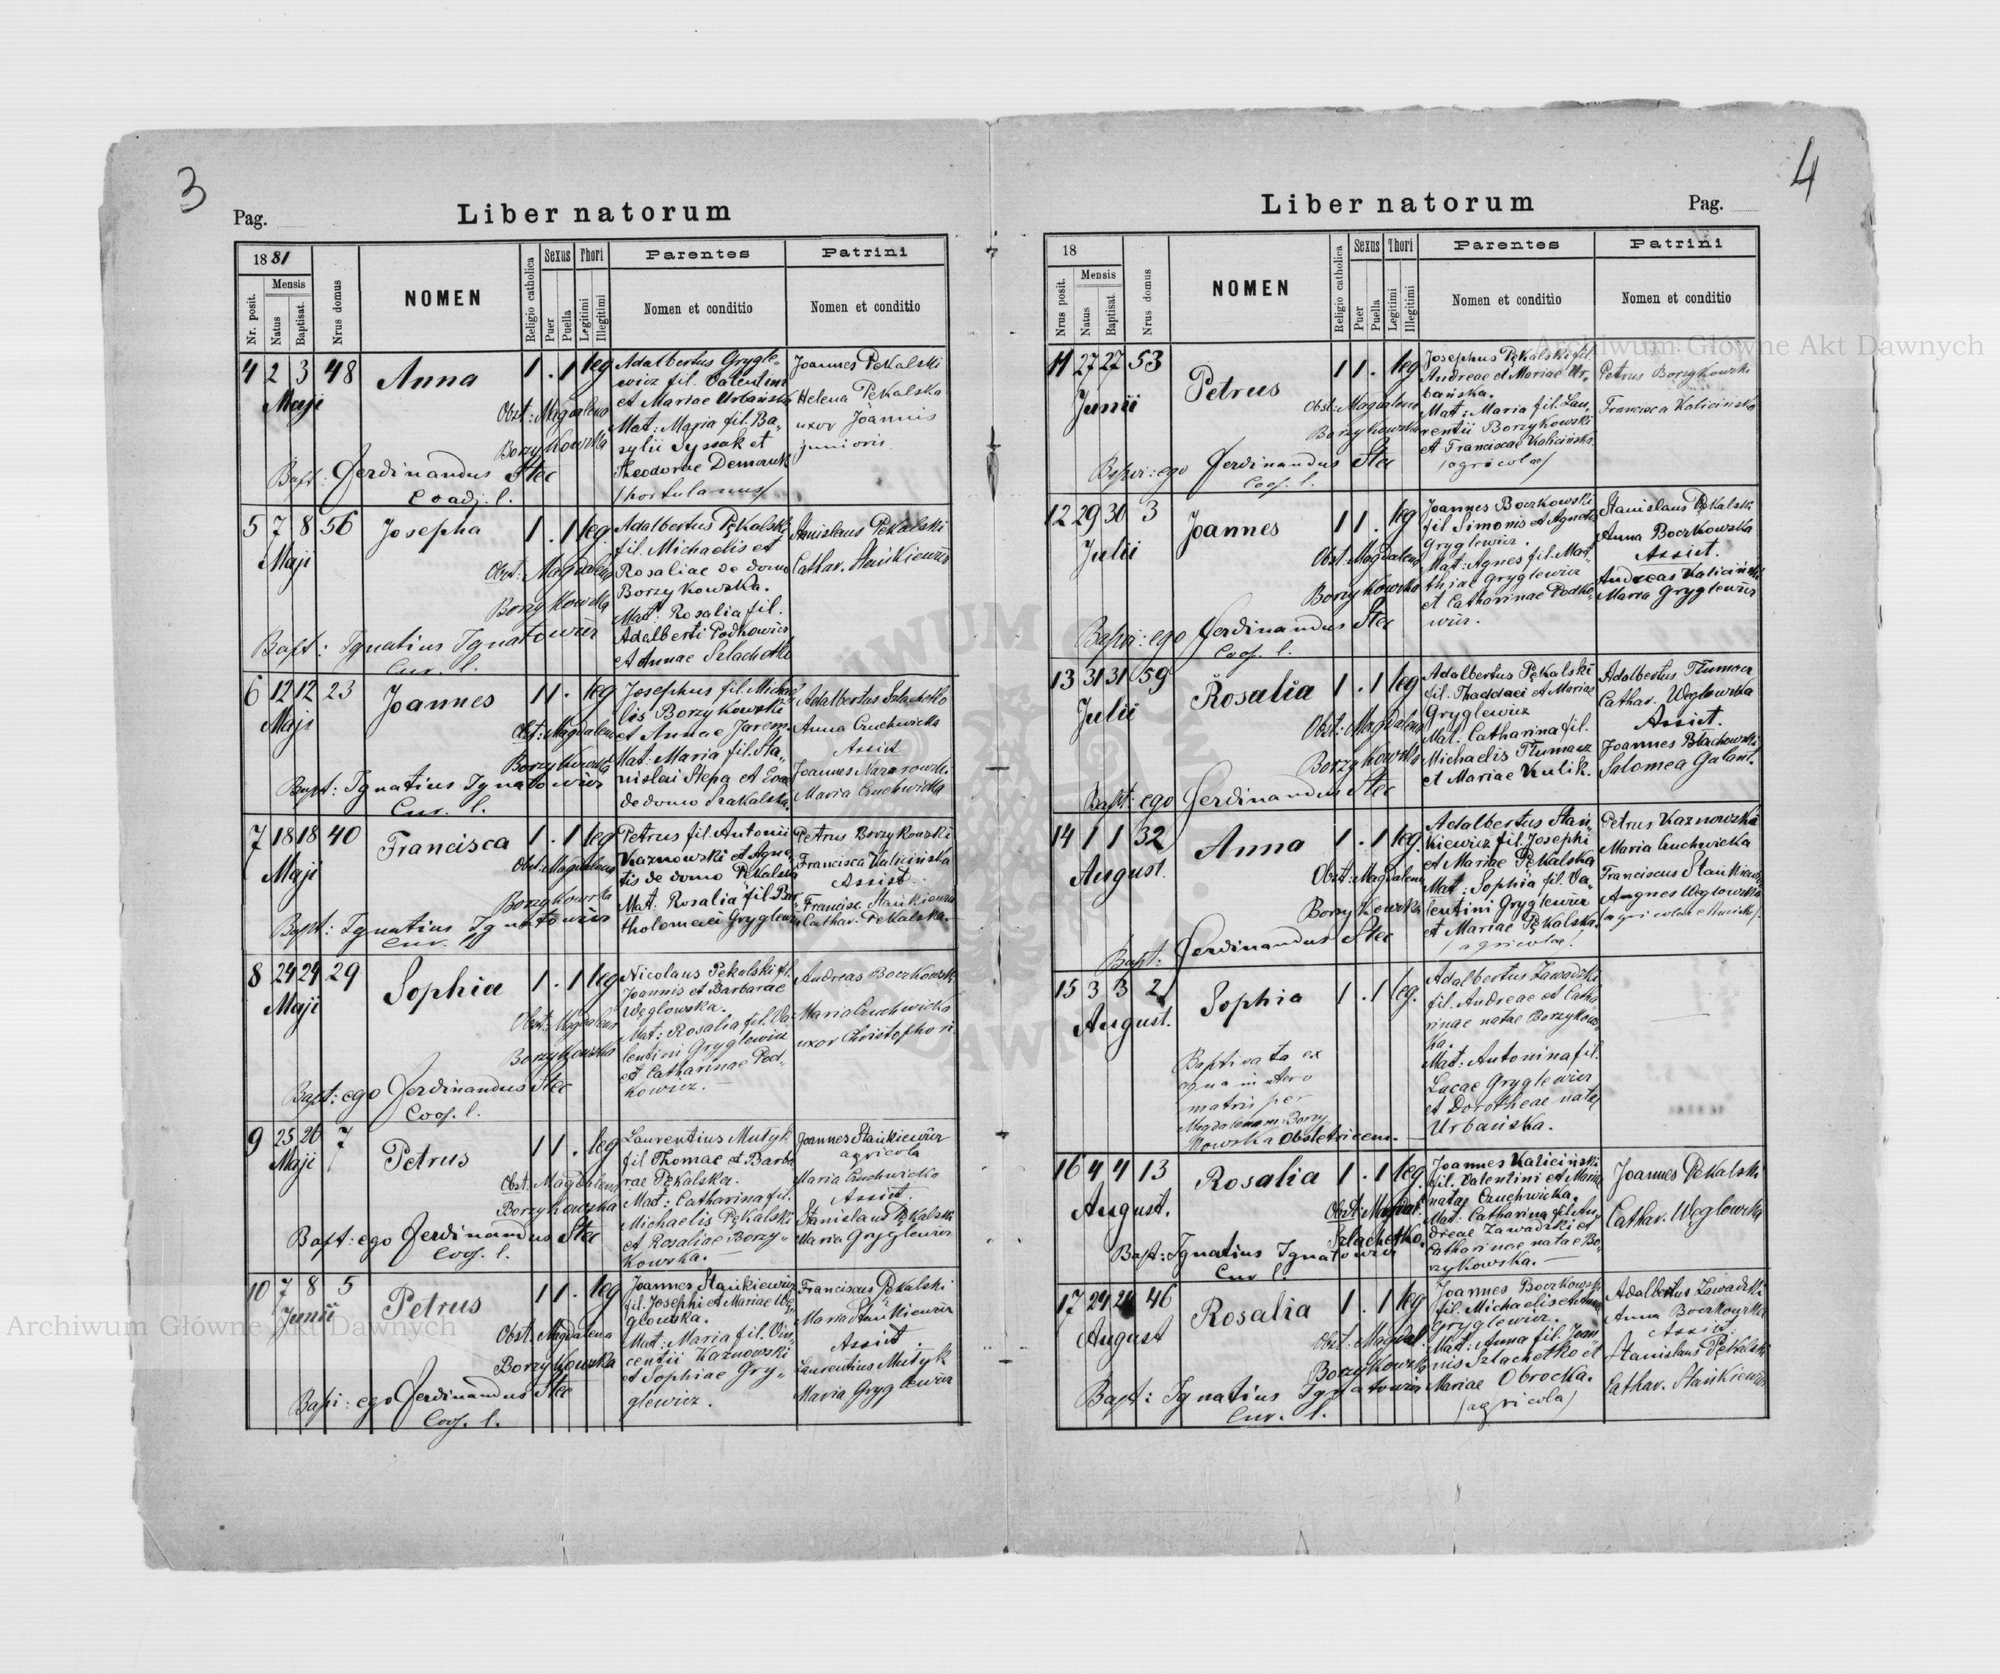 3
Pag.
Liber natorum
1881
Nr. posit.
Mensis
Natus
Baptisat.
Nrus domus
NOMEN
Religio catholica
Sexus
Puer
Puella
Thori
Legitimi
Illegitimi
Parentes
Nomen et conditio
Patrini
Nomen et conditio
4 2 3 48 Anna 1 . 1 leg
Maji
Obst: Magdalena
Borzykowska
Bapt: Ferdinandus Stec
Coadj. l.
Adalbertus Grygle-
wicz fil. Valentini
et Mariae Urbańska
Mat: Maria fil. Ba-
zylii Syssak et
Theodorae Demczuk
/hortulanus/
Joannes Pękalski
Helena Pękalska
uxor Joannis
junioris
5 7 8 56 Josepha 1 . 1 leg.
Maji
Obst: Magdalena
Borzykowska
Bapt: Ignatius Ignatowicz
Cur. l.
Adalbertus Pękalski
fil. Michaelis et
Rosaliae de domo
Borzykowska.
Mat: Rosalia fil.
Adalberti Podkowicz
et Annae Szlachetko
Stanislaus Pękalski
Cathar. Stańkiewicz
6 12 12 23 Joannes 1 1 . leg
Maji
Obst: Magdalena
Borzykowska
Bapt: Ignatius Ignatowicz
Cur. l.
Josephus fil. Michae
lis Borzykowski
et Annae Jarem.
Mat: Maria fil. Sta-
nislai Stepa et Evae
de domo Szakalska.
Adalbertus Szlachetko
Anna Czuchwicka
Assist
Joannes Nazarowski
Maria Czuchwicka
7 18 18 40 Francisca 1 . 1 leg
Maji
Obst: Magdalena
Borzykowska
Bapt: Ignatius Ignatowicz
Cur. l.
Petrus fil. Antonii
Kaznowski et Agne-
tis de domo Pękalska
Mat: Rosalia fil Bar-
tholomaei Gryglewicz
Petrus Borzykowski
Francisca Kalicińska
Assist.
Francisc. Stańkiewicz
Cathar. Pękalska.
8 24 24 29 Sophia 1 . 1 leg
Maji
Obst: Magdalena
Borzykowska
Bapt: ego Ferdinandus Stec
Coop. l.
Nicolaus Pękalski fil.
Joannis et Barbarae
Węglowska.
Mat: Rosalia fil. Va-
lentini Gryglewicz
et Catharinae Pod-
kowicz.
Andreas Boczkowski
Maria Czuchwicka
uxor Christophori.
9 25 26 7 Petrus 1 1 . leg
Maji
Obst. Magdalena
Borzykowska
Bapt: ego Ferdinandus Stec
Coop. l.
Laurentius Mutyk
fil Thomae et Barba
rae Pękalska.
Mat: Catharina fil.
Michaelis Pękalski
et Rosaliae Borzy-
kowska.
Joannes Stańkiewicz
agricola
Maria Czuchwicka
Assist.
Stanislaus Pękalski
Maria Gryglewicz
10 7 8 5 Petrus 1 1 . leg
Junii
Obst. Magdalena
Borzykowska
Bapt: ego Ferdinandus Stec
Coop. l.
Joannes Stańkiewicz
fil. Josephi et Mariae Wę-
glowska.
Mat: Maria fil. Vin-
centii Kaznowski
et Sophiae Gry-
glewicz.
Franciscus Pękalski
Maria Stańkiewicz
Assist.
Laurentius Mutyk
Maria Gryglewicz
4
Liber natorum
Pag.
18
Nrus posit.
Mensis
Natus
Baptisat.
Nrus domus
NOMEN
Religio catholica
Sexus
Puer
Puella
Thori
Legitimi
Illegitimi
Parentes
Nomen et conditio
Patrini
Nomen et conditio
11 27 27 53 Petrus 1 1 . leg
Junii
Obst: Magdalena
Borzykowska
Bapt: ego Ferdinandus Stec
Coop. l.
Josephus Pękalski fil.
Andreae et Mariae Ur-
bańska.
Mat: Maria fil. Lau-
rentii Borzykowski
et Franciscae Kalicińska
/agricolae/
Petrus Borzykowski
Francisca Kalicińska
12 29 30 3 Joannes 1 1 . leg
Julii
Obst: Magdalena
Borzykowska
Bapt: ego Ferdinandus Stec
Coop. l.
Joannes Boczkowski
fil Simonis et Agnetis
Gryglewicz.
Mat: Agnes fil. Mat-
thiae Gryglewicz
et Catharinae Podko-
wicz.
Stanislaus Pękalski
Anna Boczkowska
Assist.
Andreas Kaliciński
Maria Gryglewicz
13 31 31 59 Rosalia 1 . 1 leg
Julii
Obst: Magdalena
Borzykowska
Bapt: ego Ferdinandus Stec
Adalbertus Pękalski
fil. Thaddaei et Mariae
Gryglewicz
Mat: Catharina fil.
Michaelis Tłumacz
et Mariae Kulik.
Adalbertus Tłumacz
Cathar. Węglowska
Assist.
Joannes Błachowski
Salomea Galant.
14 1 1 32 Anna 1 . 1 leg.
August.
Obst: Magdalena
Borzykowska
Bapt: Ferdinandus Stec
Adalbertus Stań-
kiewicz fil. Josephi
et Mariae Pękalska
Mat: Sophia fil. Va-
lentini Gryglewicz
et Mariae Pękalska.
/agricolae/
Petrus Kaznowski
Maria Czuchwicka
Franciscus Stańkiewicz
Angnes Węglowska
15 3 3 2 Sophia 1 . 1 leg.
August.
Baptisata ex
aqua in utero
matris per
Magdalenam Borzy-
kowska Obstetricem.
Adalbertus Zawadzki
fil. Andreae et Catha
rinae natae Borzykows-
ka.
Mat: Antonina fil.
Lucae Gryglewicz
et Dorotheae natae
Urbańska.
16 4 4 13 Rosalia 1 . 1 leg.
August.
Obst: Magdal.
Szlachetko.
Bapt: Ignatius Ignatowicz
Cur l.
Joannes Kaliciński
fil. Valentini et Maria
natae Czuchwicka.
Mat: Catharina fil. An-
dreae Zawadzki et
Catharinae natae Bo-
rzykowska.
Joannes Pękalski
Cathar. Węglowska
17 24 24 46 Rosalia 1 . 1 leg
August
Obst: Magdal.
Borzykowska
Bapt: Ignatius Ignatowicz
Cur. l.
Joannes Boczkowski
fil. Michaelis et Annae
Gryglewicz.
Mat: Anna fil. Joan-
nis Szlachetko et
Mariae Obrocka.
/agricola/
Adalbertus Zawadzki
Anna Boczkowska
Assist.
Stanislaus Pękalski
Cathar. Stańkiewicz
Archiwum Główne Akt Dawnych
Archiwum Główne Akt Dawnych